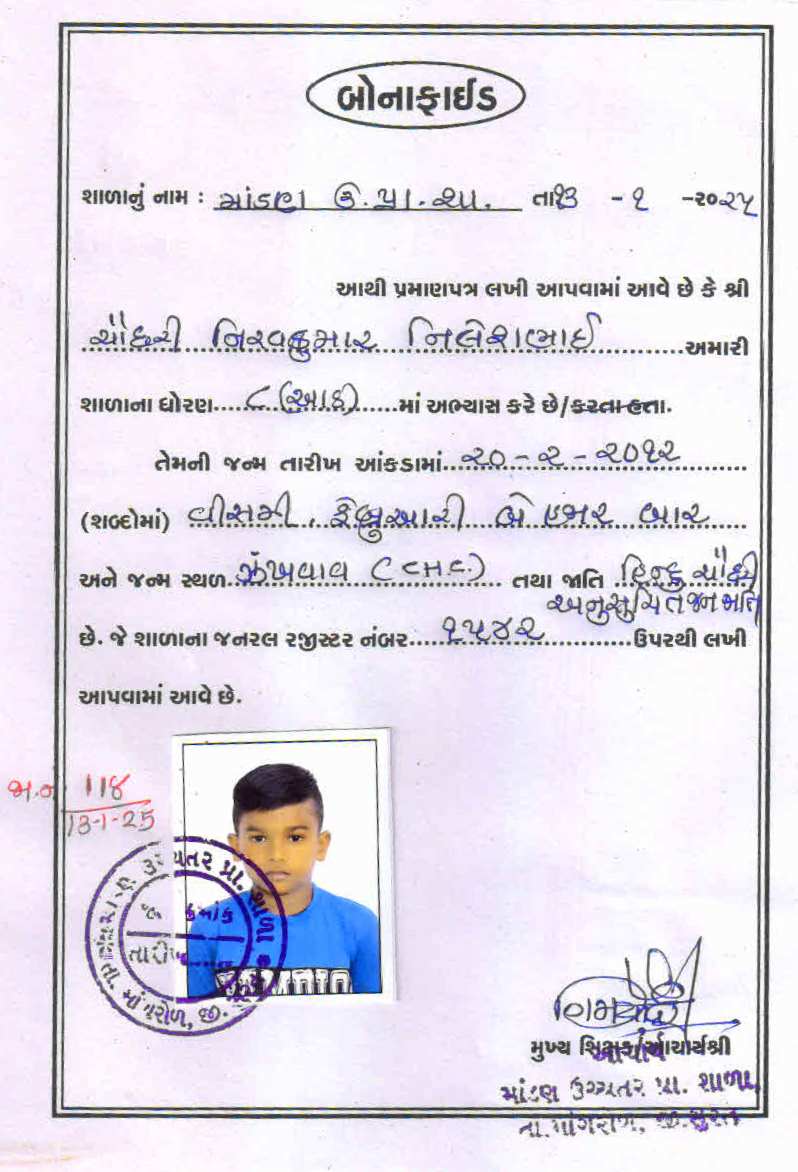 બોનાફાઈડ
શાળાનું નામ : માંડણ ઉ.પ્રા.શા. તા.૧૩ -૧ -૨૦૨૫
આથી પ્રમાણપત્ર લખી આપવામાં આવે છે કે શ્રી
ચૌધરી નિરવકુમાર નિલેશભાઈ અમારી
શાળાના ધોરણ ૮ (આઠ) માં અભ્યાસ કરે છે/કરતા હતા.
તેમની જન્મ તારીખ આંકડામાં ૨૦-૨-૨૦૧૨
(શબ્દોમાં) વીસમી, ફેબ્રુઆરી બે હજાર બાર
અને જન્મ સ્થળ ઝંખવાવ (CHC) તથા જાતિ હિન્દુ ચૌધરી
અનુસુચિતજનજાતિ
છે. જે શાળાના જનરલ રજીસ્ટર નંબર ૧૫૪૨ ઉપરથી લખી
આપવામાં આવે છે.
જા.નં 118
13-1-25
માંડણ ઉચ્ચતર પ્રા. શાળા
ક્રમાંક
તારીખ
તા. માંગરોળ, જી.
મુખ્ય શિક્ષક/આચાર્યશ્રી
આચાર્ય
માંડણ ઉચ્ચતર પ્રા. શાળા,
તા.માંગરોળ, જી.સુરત